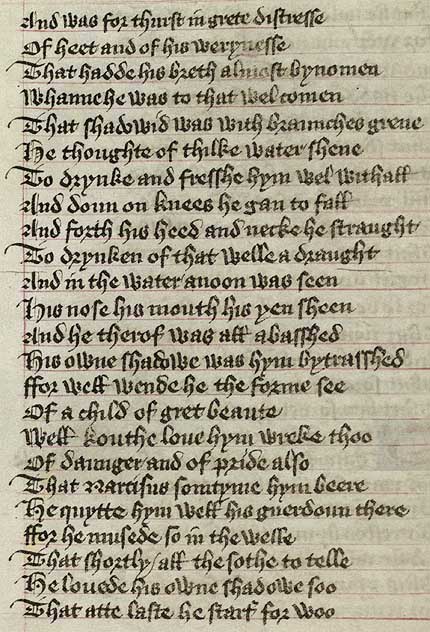 And was for thurst in grete distresse
Of heet and of his werynesse
That hadde his breth almost bynomen
Whanne he was to that wel comen
That shadowid was with braunches grene
He thoughte of thilke water shene
To drynke and fresshe hym wel withall
And doun on knees he gan to fall
And forth his heed and necke he straught
To drynken of that welle a draught
And in the water anoon was seen
His nose his mouth his yen sheen
And he therof was all abasshed
His owne shadowe was hym bytrasshed
ffor well wende he the forme see
Of a child of gret beaute
Well kouthe love hym wreke thoo
Of daunger and of pride also
That Narcisus somtyme hym beere
He quytte hym well his guerdoun there
ffor he musede so in the welle
That shortly / all the sothe to telle
He lovede his owne shadowe soo
That atte laste he starf for woo